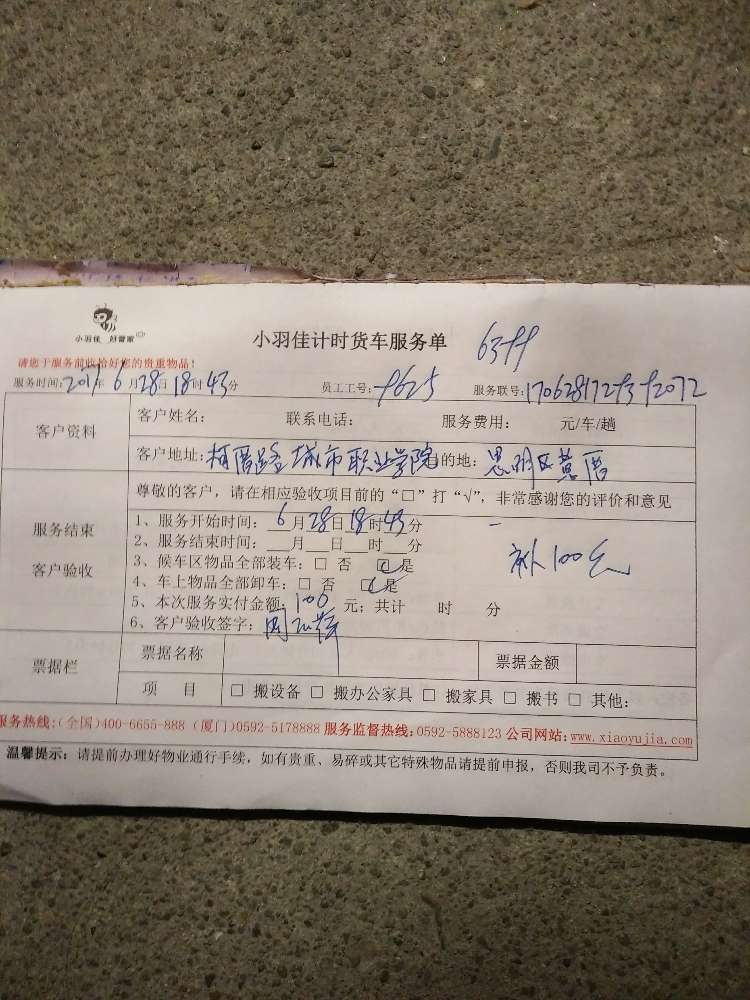 小羽佳 好管家
小羽佳计时货车服务单
请您于服务前收拾好您的贵重物品！
服务时间：2017年6月28日18时43分 员工工号：9625 服务联号：
客户资料
客户姓名： 联系电话： 服务费用： 元/车/趟
客户地址：柯厝路 城市职业学院 目的地：思明区黄厝
服务结束
客户验收
尊敬的客户，请在相应验收项目前的“□”打“√”，非常感谢您的评价和意见
1、服务开始时间：6月28日18时43分
2、服务结束时间：__月__日__时__分
3、候车区物品全部装车：□ 否 □是
补100元
4、车上物品全部卸车：□ 否 □是
5、本次服务实付金额：100 元；共计 时 分
6、客户验收签字：
票据栏
票据名称 票据金额
项 目 □ 搬设备 □ 搬办公家具 □ 搬家具 □ 搬书 □ 其他：
服务热线：(全国)400-6655-888 (厦门)0592-5178888 服务监督热线：0592-5888123 公司网站：www.xiaoyujia.com
温馨提示：请提前办理好物业通行手续，如有贵重、易碎或其它特殊物品请提前申报，否则我司不予负责。